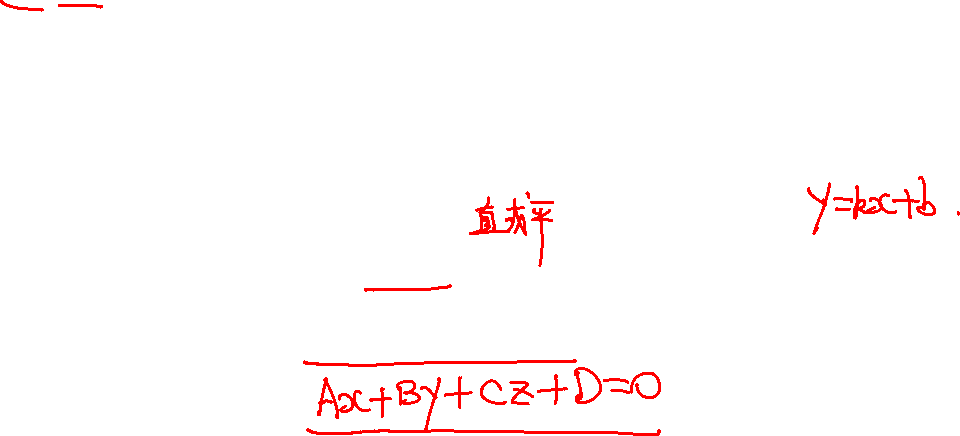 直或平
y=kx+b.
Ax+By+Cz+D=0